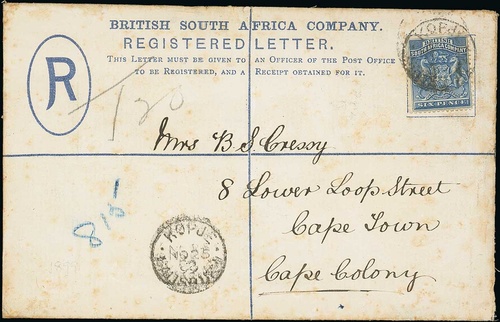 BRITISH SOUTH AFRICA COMPANY.
REGISTERED LETTER.
THIS LETTER MUST BE GIVEN TO AN OFFICER OF THE POST OFFICE
TO BE REGISTERED, AND A RECEIPT OBTAINED FOR IT.
R
KOPJE
SOUTH AFRICA COMPANY
SIX PENCE
120
Mrs B. S. Cressy
8 Lower Loop Street
Cape Town
Cape Colony
815
KOPJE
NO 25
SALISBURY